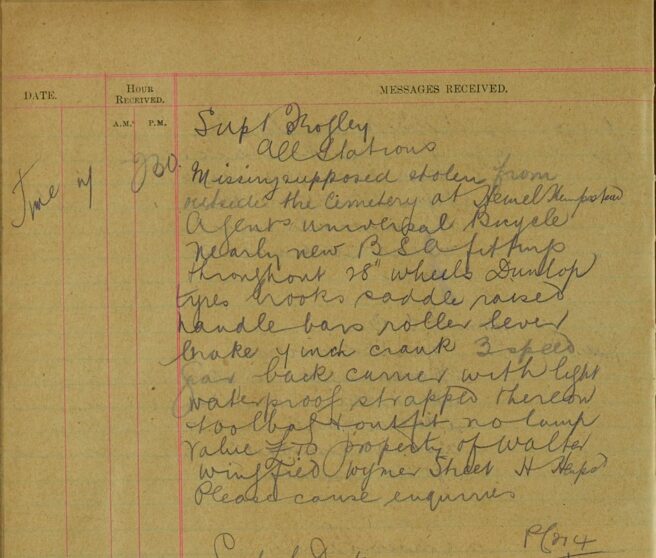 DATE.
HOUR RECEIVED.
MESSAGES RECEIVED.
A.M. P.M.
Supt Frogley
All Stations
June 17
Missing supposed stolen from
outside the Cemetery at Hemel Hempstead
Agents universal Bicycle
nearly new B S A fittings
throughout 28" wheels Dunlop
tyres brooks saddle raised
handle bars roller lever
brake 7 inch crank 3 speed
gear back carrier with light
waterproof strapped thereon
toolbag & outfit no lamp
value £10 property of Walter
Wingfied Wymer Street H Hempsd
Please cause enquiries